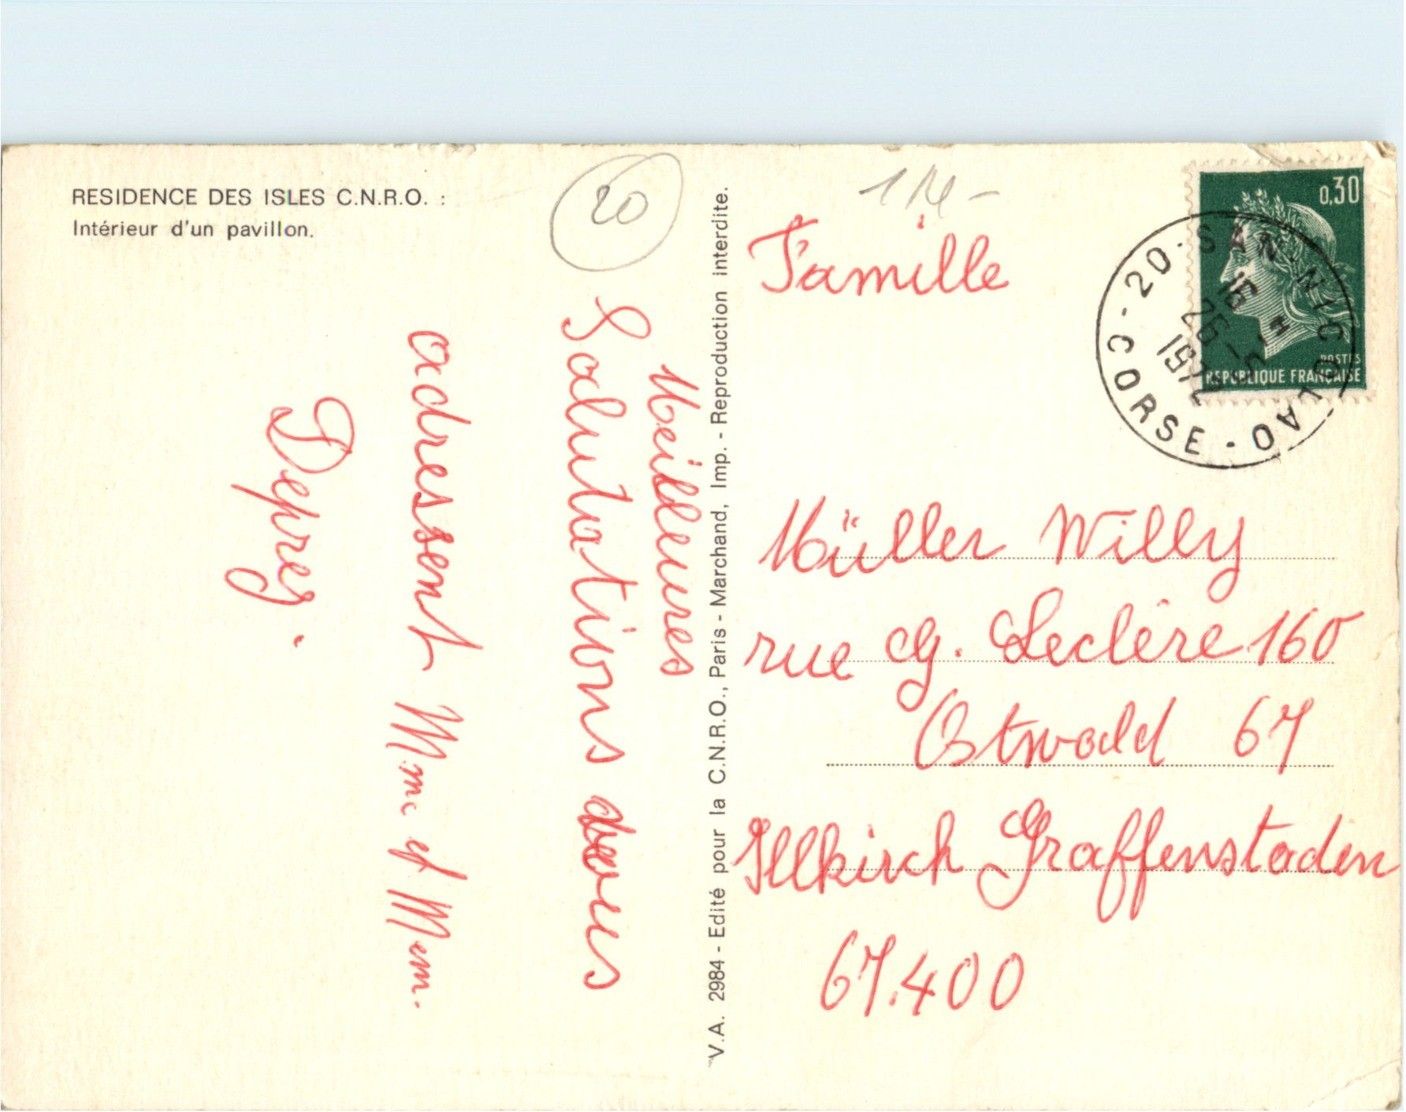 RESIDENCE DES ISLES C.N.R.O. :
Intérieur d'un pavillon.
20
Meilleures
Salutations
adressent Mme et Mem.
Deprez.
V.A. 2984 - Edité pour la C.N.R.O., Paris - Marchand, Imp. - Reproduction interdite.
Famille
Müller Willy
rue g. Leclère 160
Ostwald 67
Illkirch Graffenstaden
67.400
0,30
POSTES
REPUBLIQUE FRANÇAISE
20 - SAN-NICOLAO - CORSE
16 H
26 - 5
1972